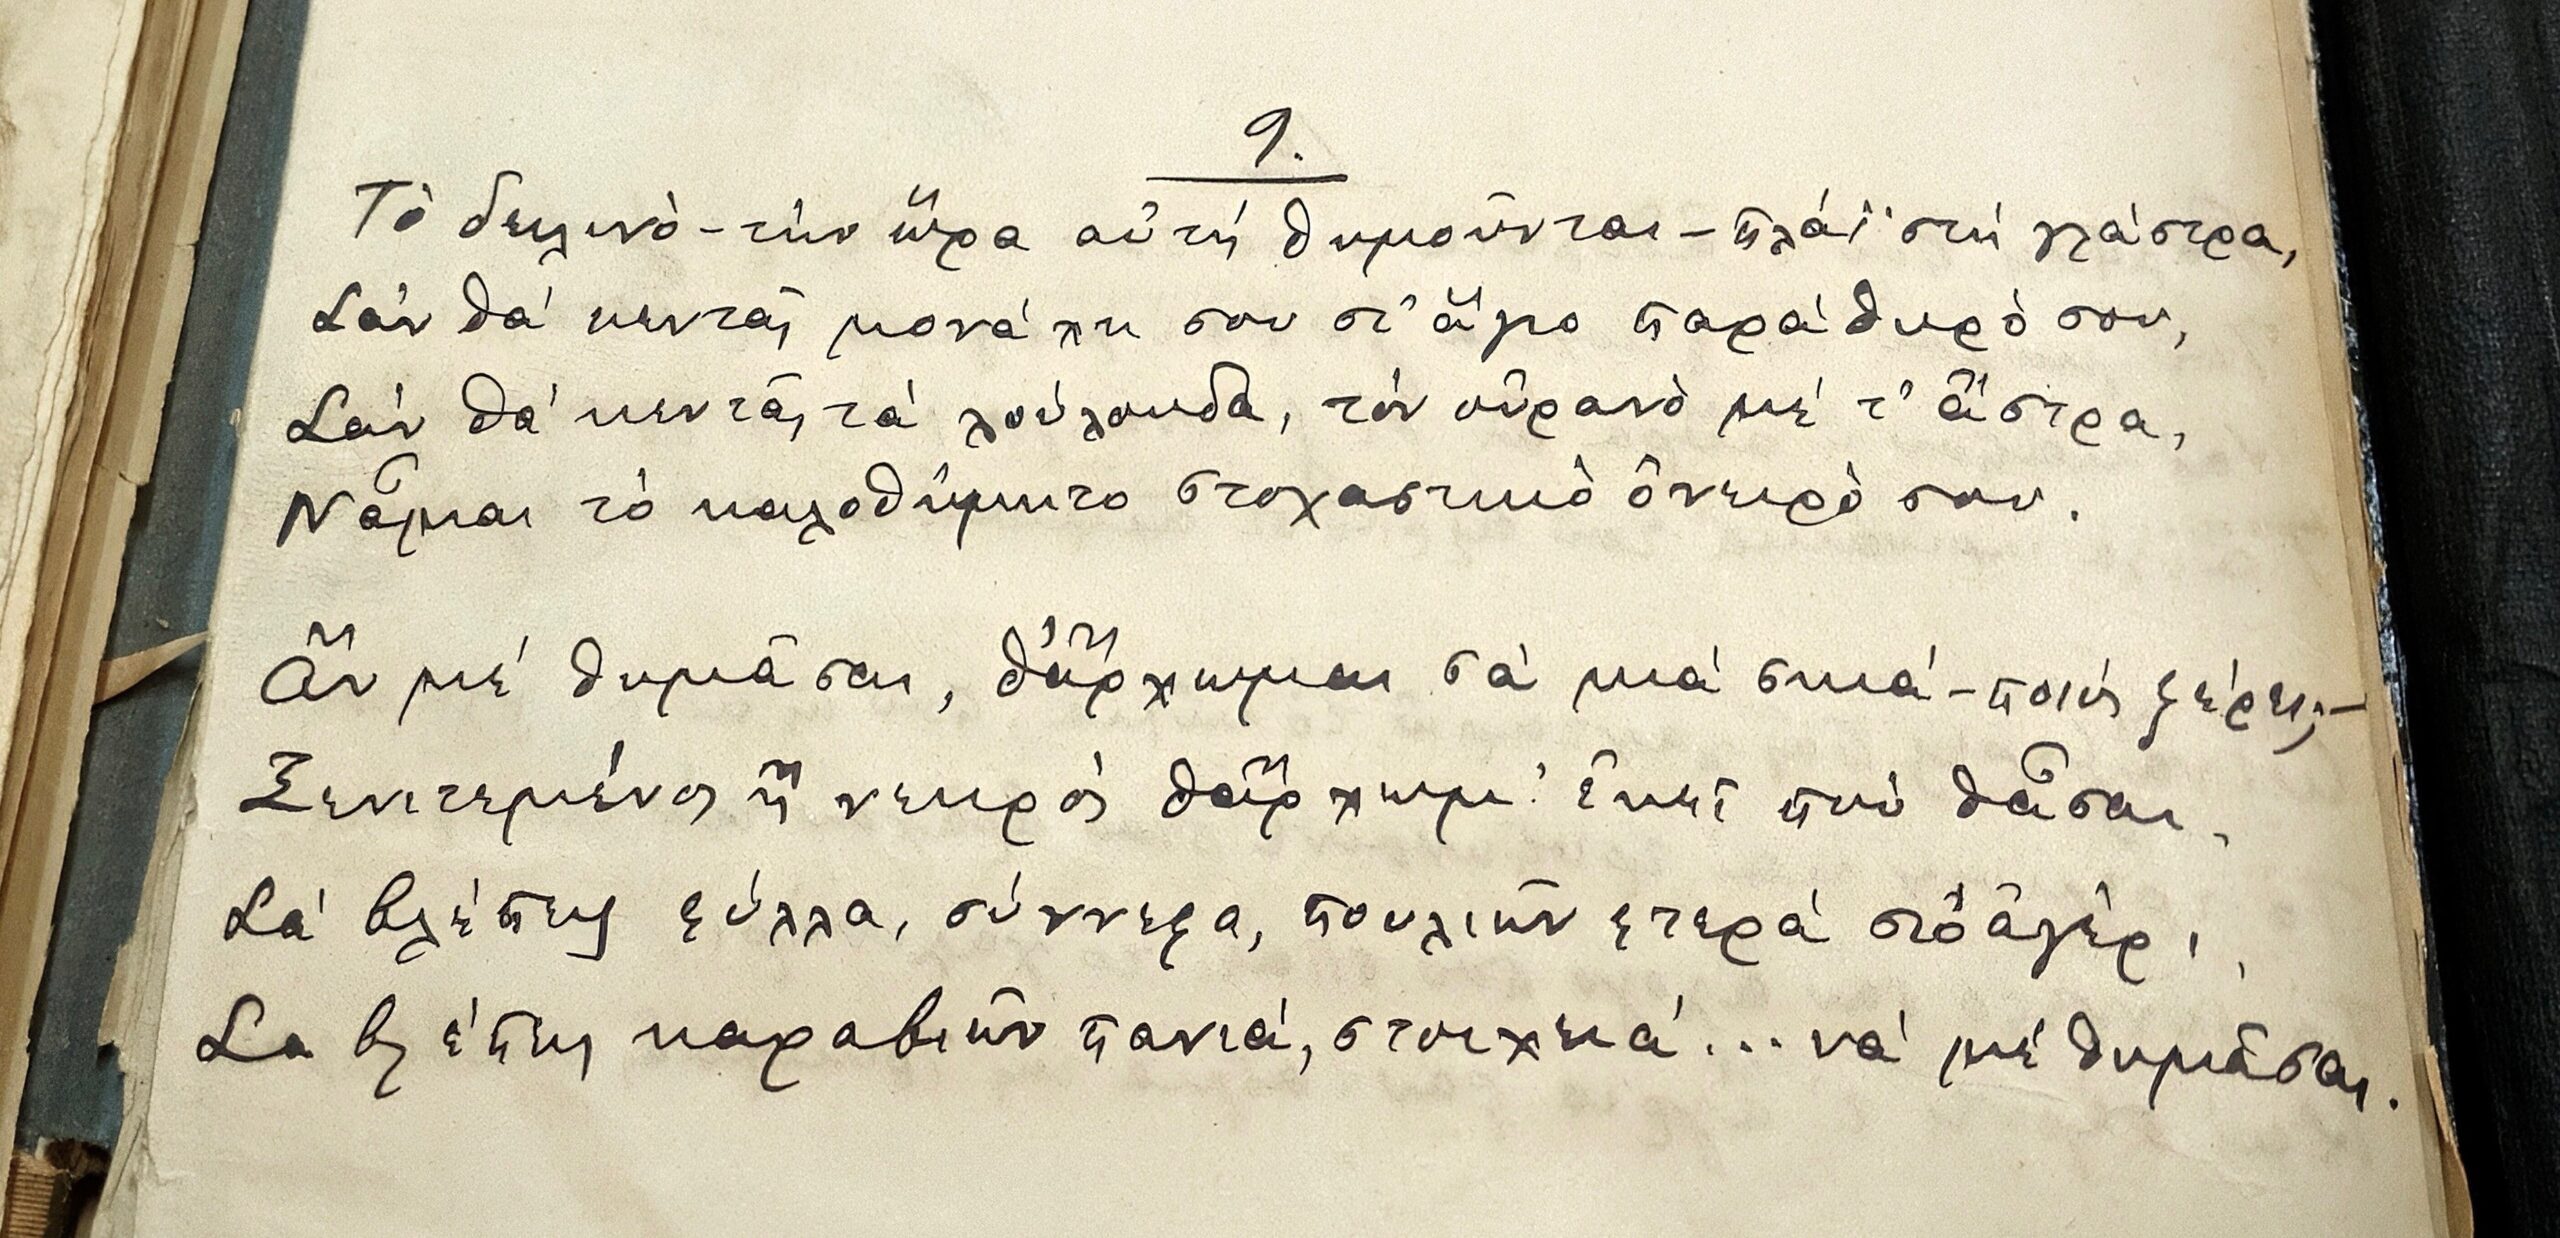 9.
Τὸ δειλινὸ - τὴν ὥρα αὐτὴ θυμοῦνται - πλάϊ στὴ γλάστρα,
Σὰν θὰ κεντᾷς μονάχη σου στ' ἅγιο παράθυρό σου,
Σὰν θὰ κεντᾷς τὰ λούλουδα, τὸν οὐρανὸ μὲ τ' ἄστρα,
Νἆμαι τὸ καλοθύμητο στοχαστικὸ ὄνειρό σου.
Ἂν μὲ θυμᾶσαι, θἄρχωμαι σὰ μιὰ σκιὰ - ποιὸς ξέρει; -
Ξενιτεμένος ἢ νεκρὸς θἄρχωμ' ἐκεῖ ποὺ θἆσαι,
Σὰ βλέπῃς φύλλα, σύννεφα, πουλιῶν φτερὰ στὸ ἀγέρι,
Σα βλέπῃς καραβιῶν πανιά, στοιχειά... νὰ μὲ θυμᾶσαι.